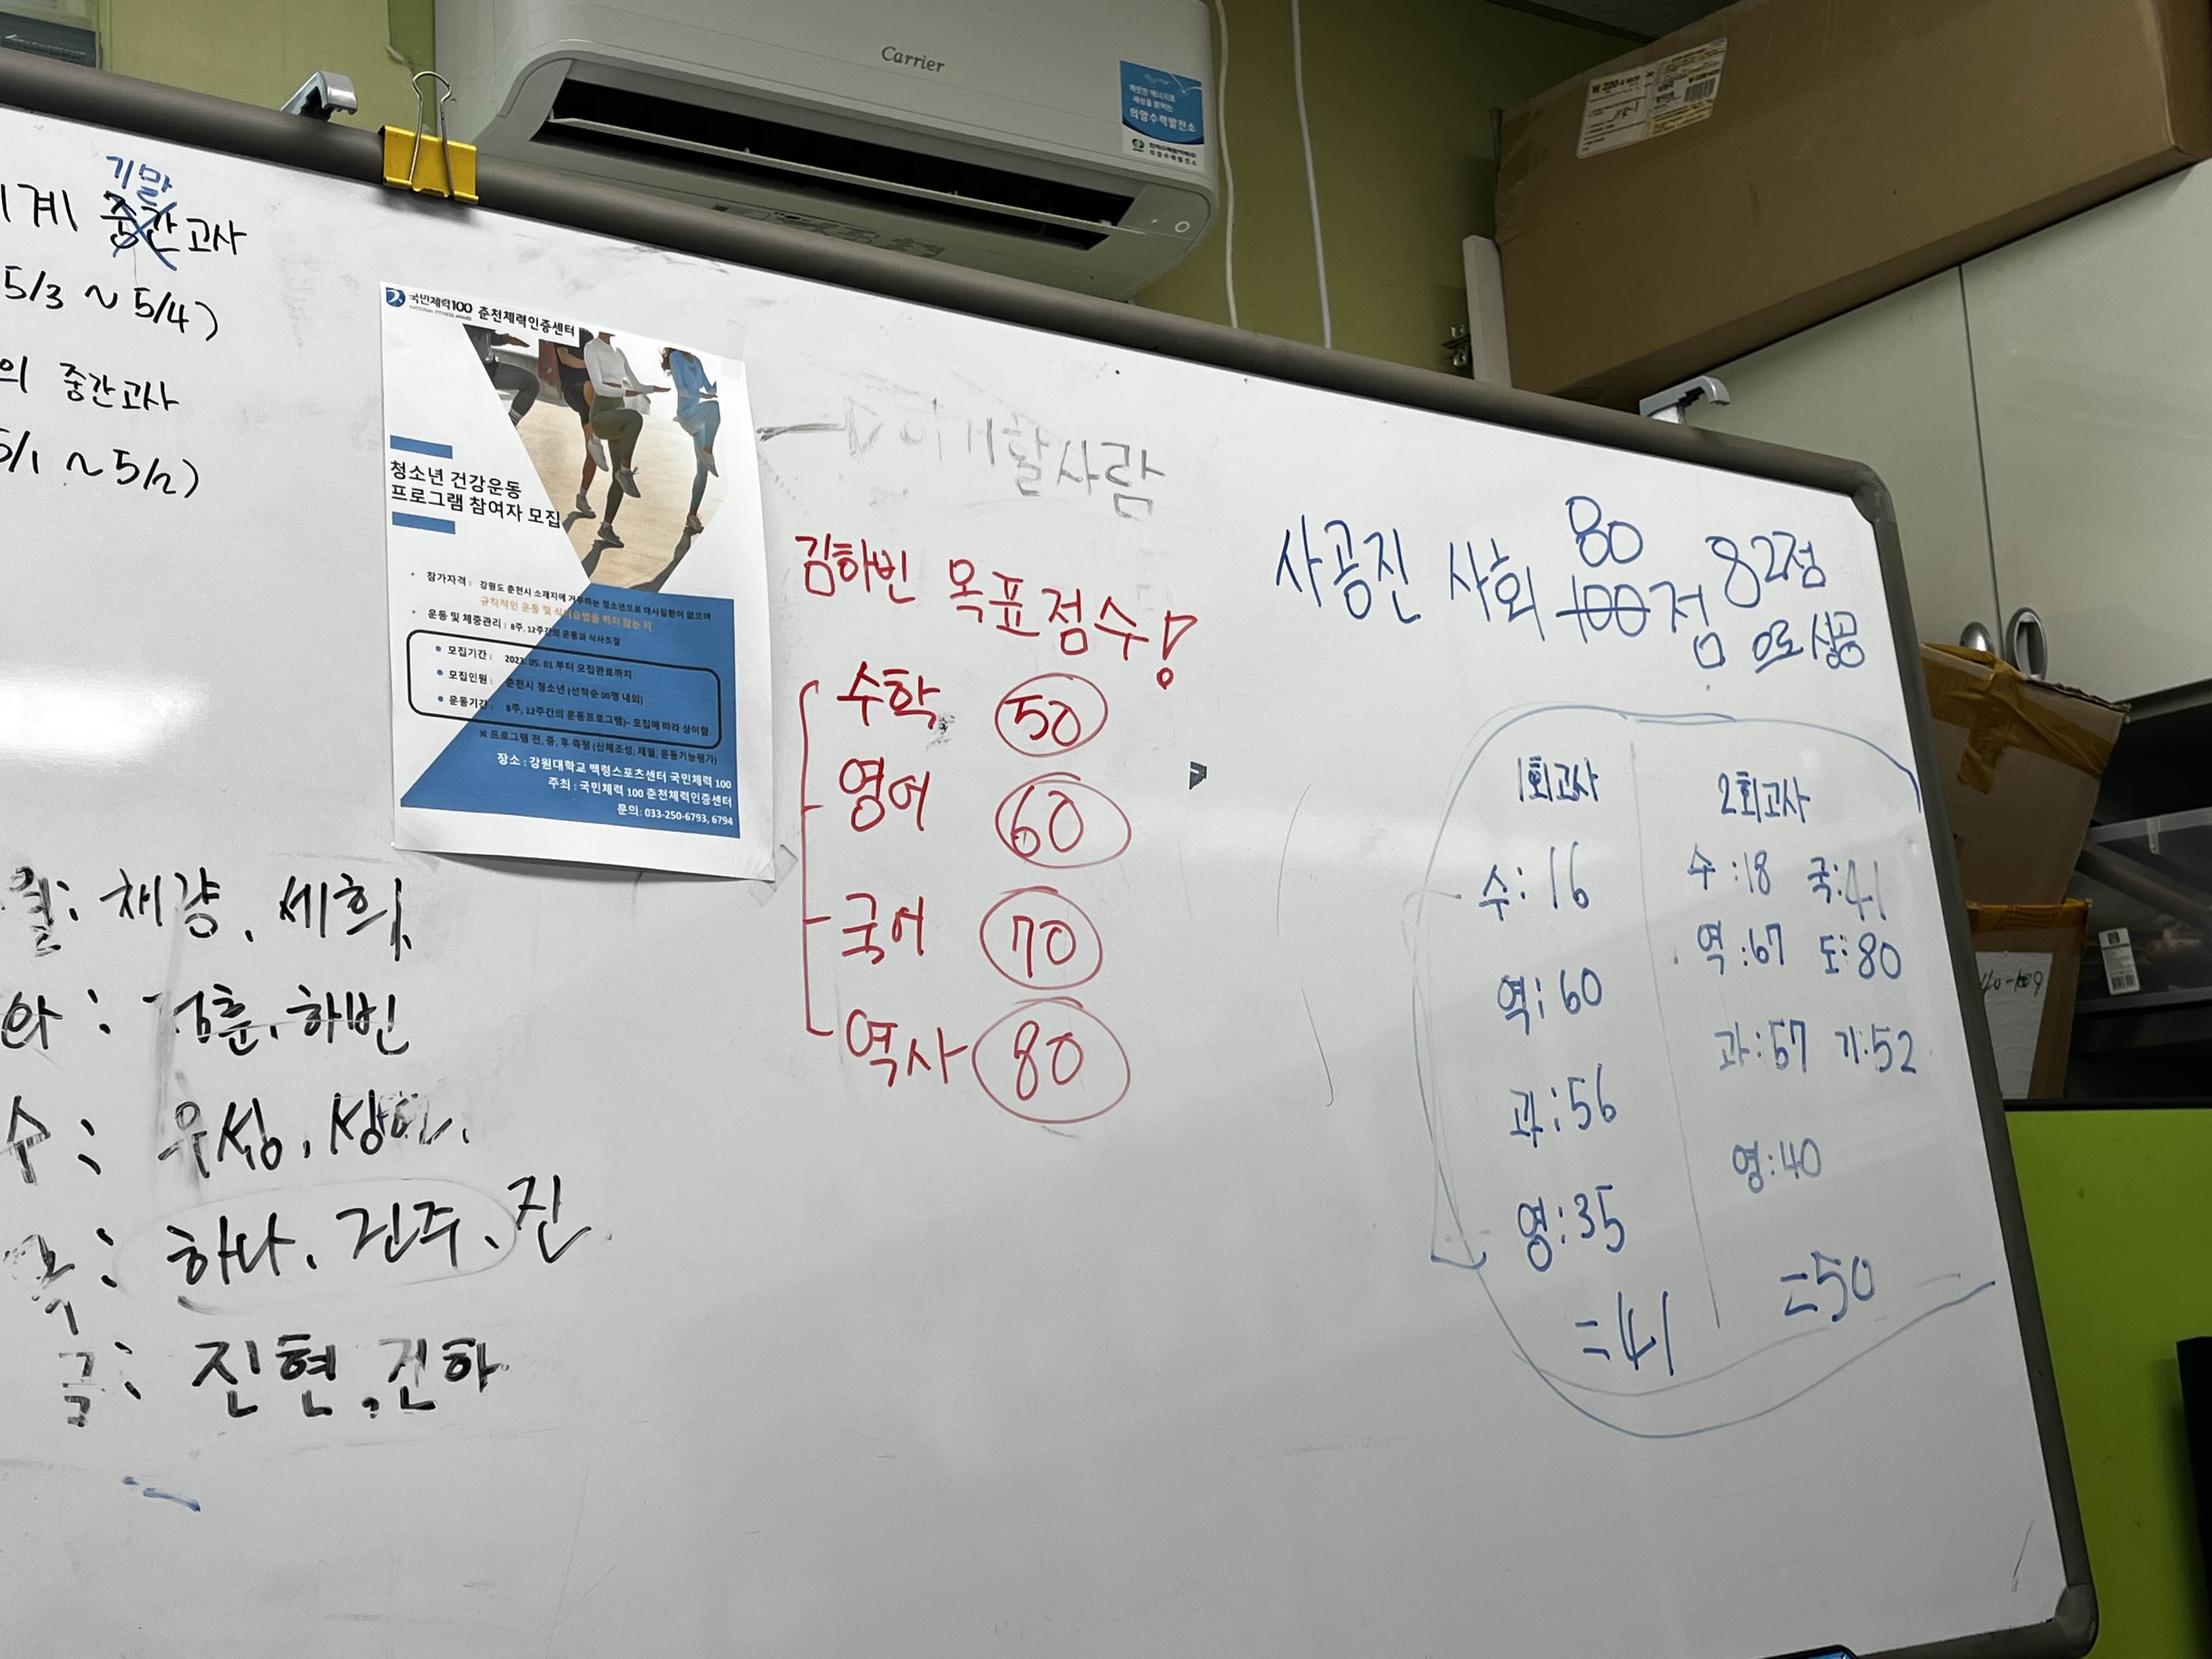 Carrier
깨끗한 에너지로
세상을 밝히는
의암수력발전소
의암수력발전소
기말
계 중간고사
5/3 ~ 5/4)
의 중간고사
5/1 ~ 5/2)
국민체력100 춘천체력인증센터
NATIONAL FITNESS AWARD
청소년 건강운동
프로그램 참여자 모집
참가자격 : 강원도 춘천시 소재지에 거주하는 청소년으로 대사질환이 없으며
규칙적인 운동 및 식이요법을 하지 않는 자
운동 및 체중관리 : 8주, 12주간의 운동과 식사조절
모집기간 : 2023. 05. 01 부터 모집완료까지
모집인원 : 춘천시 청소년 (선착순 00명 내외)
운동기간 : 8주, 12주간의 운동프로그램)- 모집에 따라 상이함.
※ 프로그램 전, 중, 후 측정 (신체조성, 체월, 운동기능평가)
장소 : 강원대학교 백령스포츠센터 국민체력 100
주최 : 국민체력 100 춘천체력인증센터
문의: 033-250-6793, 6794
이거할사람
김하빈 목표점수!
수학 50
영어 60
국어 70
역사 80
사공진 사회 80 100점 82점
으로 성공
1회고사
수: 16
역: 60
과: 56
영: 35
=41
2회고사
수:18 국:41
역:67 도:80
과:57 기:52
영:40
=50
월: 채량, 세희,
화: 정훈, 하빈
수: 우성,
목: 하나, 진주, 진
금: 진현, 진하